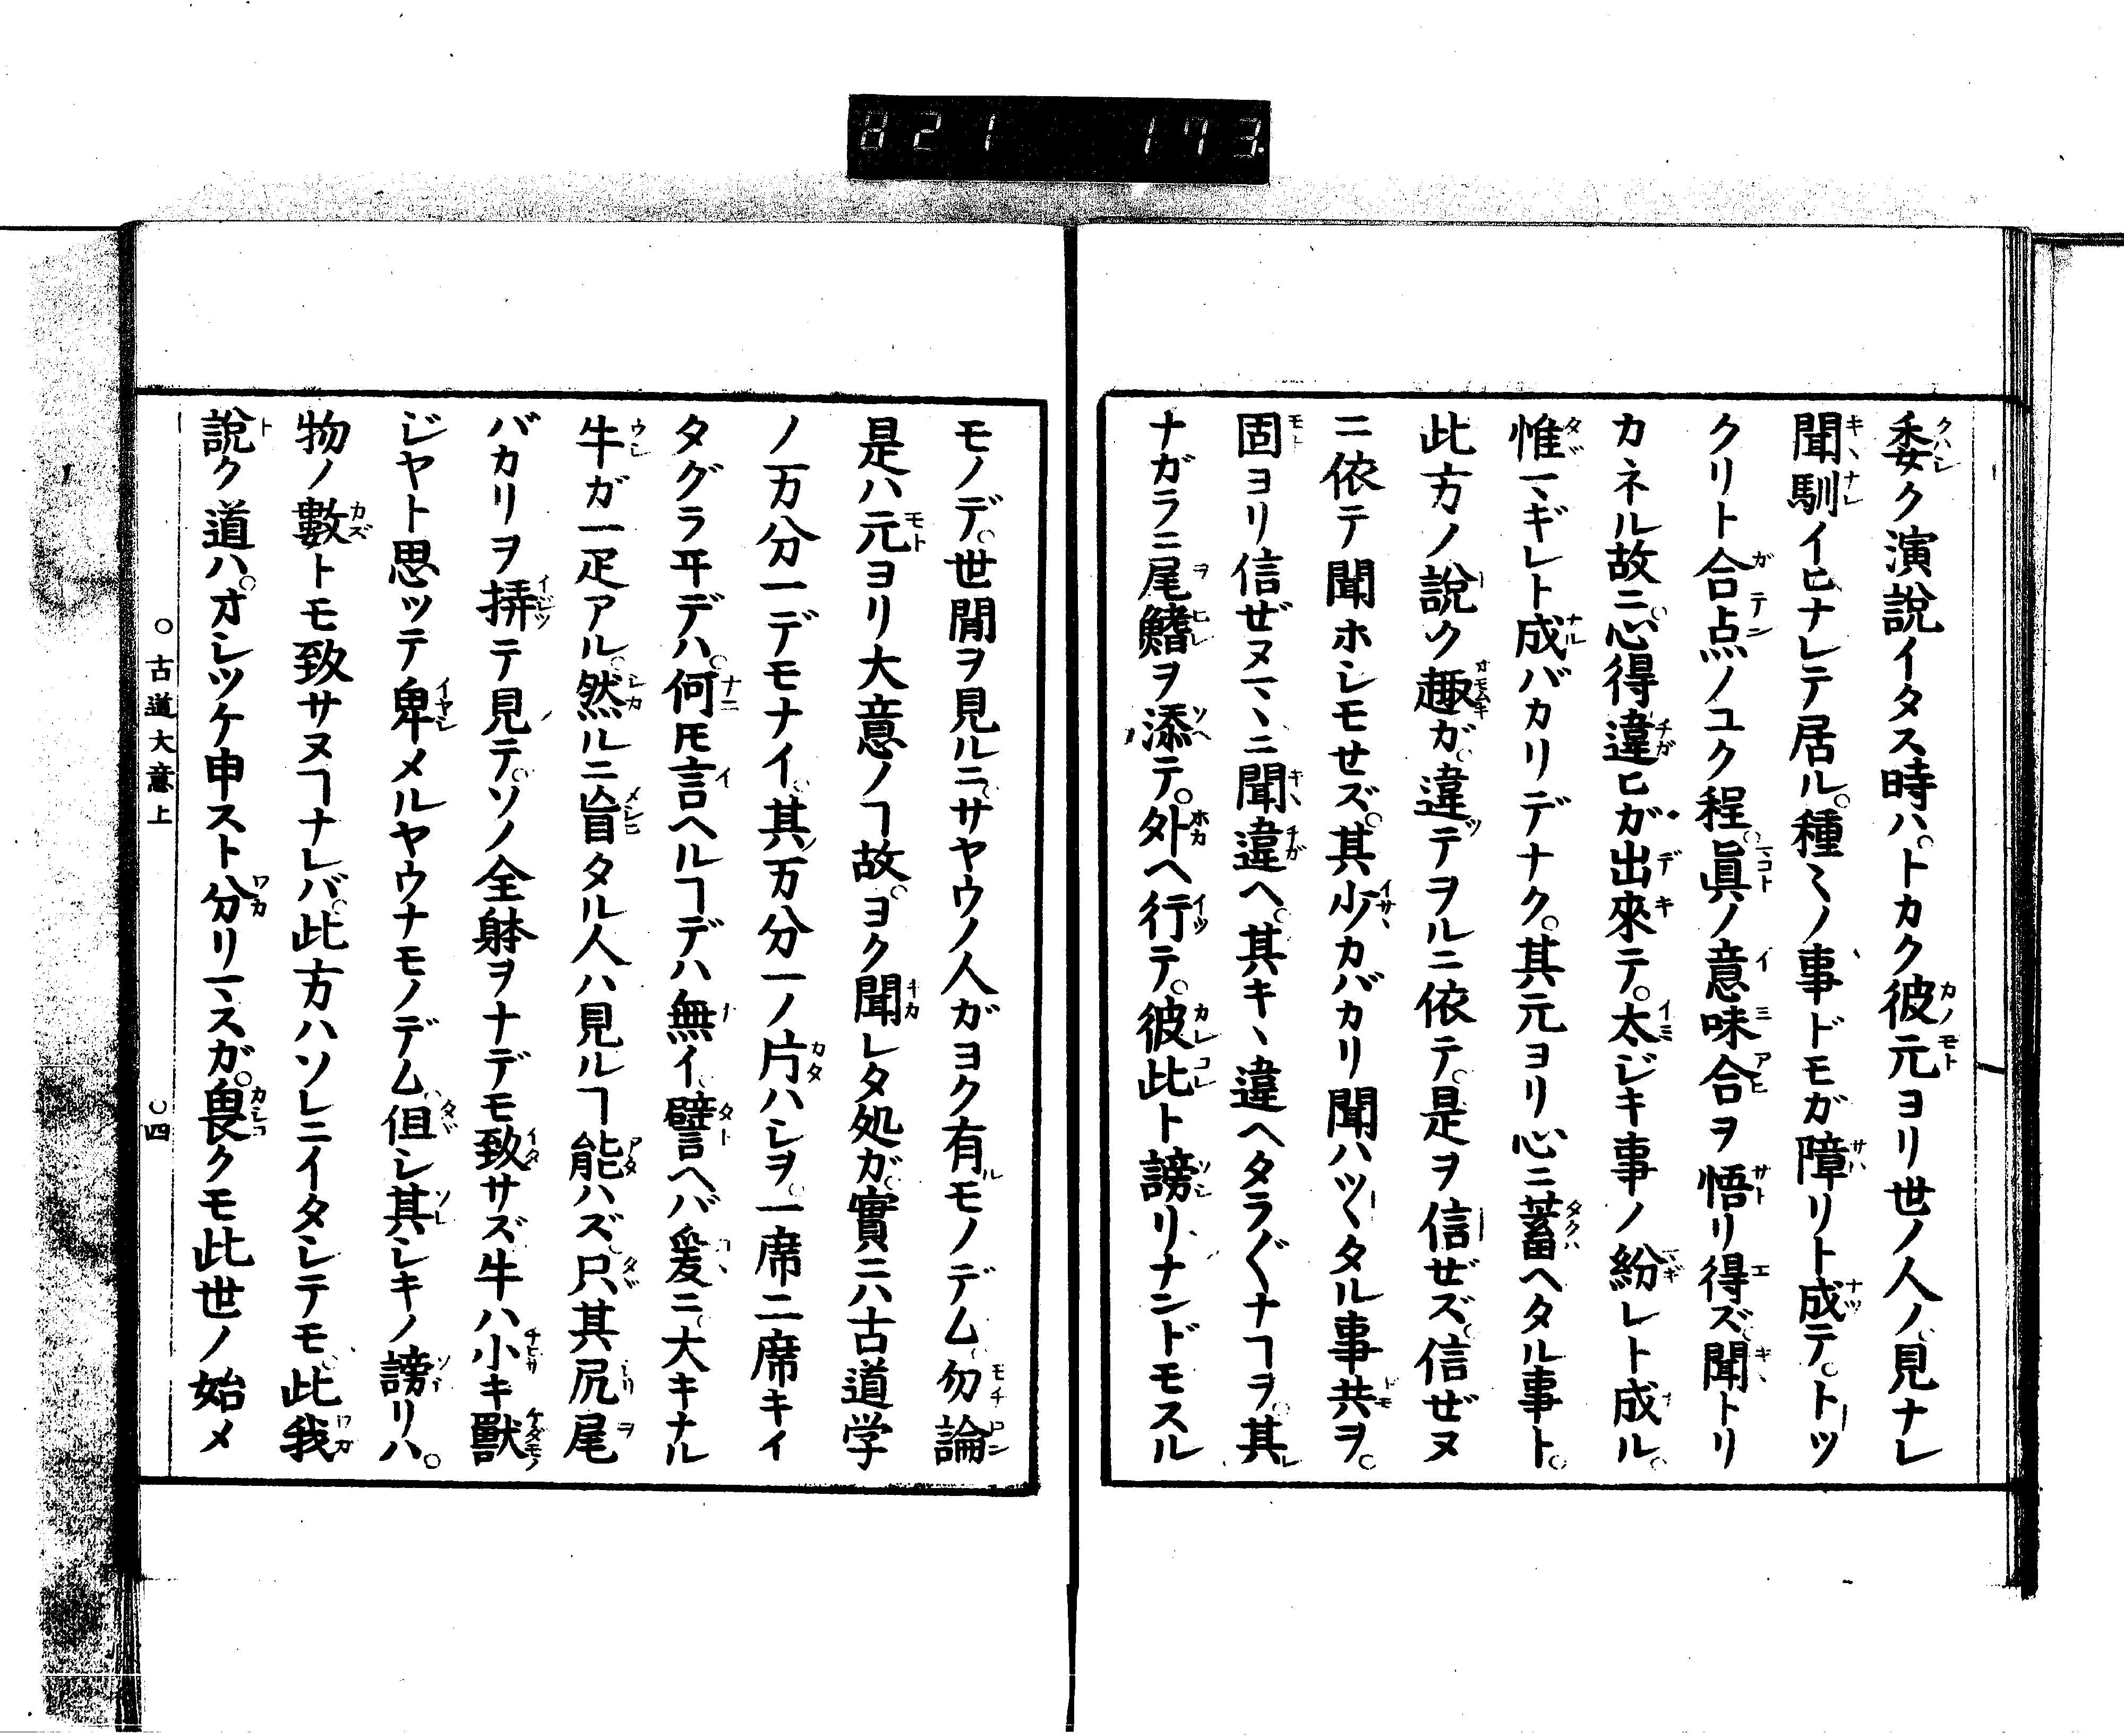 821 173.
委ク演説イタス時ハ。トカク彼元ヨリ世ノ人ノ。見ナレ
聞馴イヒナレテ居ル。種〻ノ事ドモガ障リト成テ。トツ
クリト合点ノユク程。眞ノ意味合ヲ悟リ得ズ。聞トリ
カネル故ニ。心得違ヒガ出來テ。太ジキ事ノ紛レト成ル。
惟マヽギレト成バカリデナク。其元ヨリ心ニ蓄ヘタル事ト。
此方ノ説ク趣ガ。違デヲルニ依テ。是ヲ信ゼズ。信ゼヌ
ニ依テ聞ホシモせズ。其少カバカリ聞ハツヽタル事共ヲ。
固ヨリ信ぜヌマヽニ聞違ヘ。其キヽ違ヘタラ〲ナヿヲ。其
ナガラニ尾鰭ヲ添テ。外ヘ行テ。彼此ト謗リナンドモスル
モノデ。世間ヲ見ルニ。サヤウノ人ガヨク有モノデム。勿論
是ハ元ヨリ大意ノヿ故。ヨク聞レタ処ガ。實ニハ古道学
ノ万分一デモナイ。其万分一ノ片ハシヲ。一席二席キイ
タグラヰデハ。何𪜈言ヘルヿデハ無イ。譬ヘバ爰ニ。大キナル
牛ガ一疋アル。然ルニ盲タル人ハ見ルヿ能ハズ。只其尻尾
バカリヲ挵テ見テ。ソノ全躰ヲナデモ致サズ牛ハ小キ獸
ジヤト思ツテ卑メルヤウナモノデム。伹シ其シキノ謗リハ。
物ノ數トモ致サヌヿナレバ。此方ハソレニイタシテモ。此我
説ク道ハ。オシツケ申スト分リマスガ。畏クモ此世ノ始メ
○古道大意上 ○四